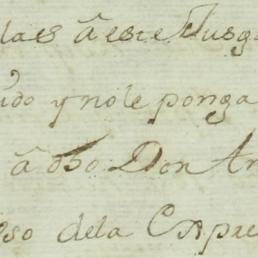 las â este Jusga
ido y no le ponga
â dho Don An
eso dela Expre